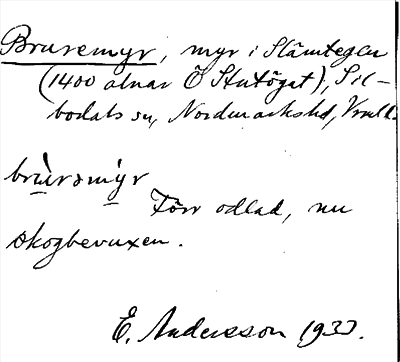 Bruremyr, myr i Slämtegen
(1400 alnar Ö Stutögat), Sil-
bodals sn, Nordmarks hd, Vrml.
brùrəmýr
Förr odlad, nu
skogbevuxen.
E. Andersson 1933.